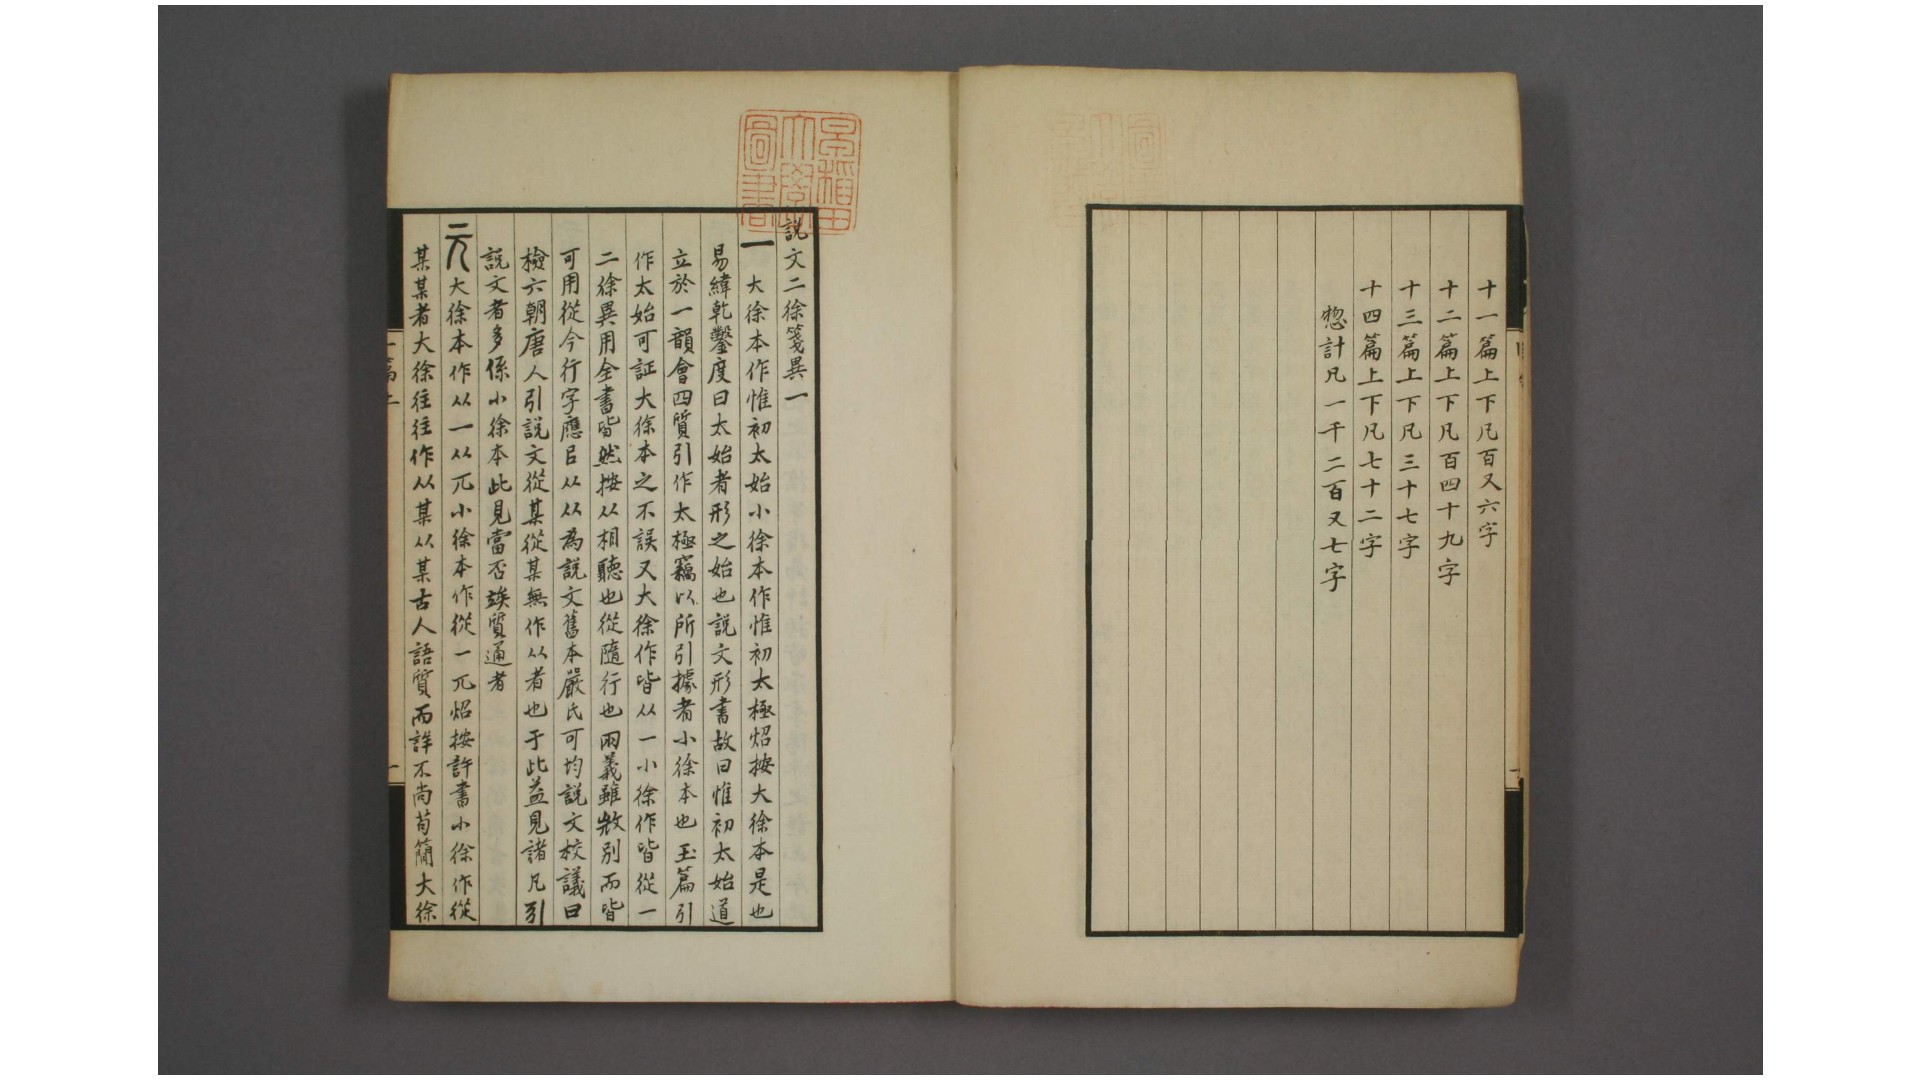 十一篇上下凡百又六字
十二篇上下凡百四十九字
十三篇上下凡三十七字
十四篇上下凡七十二字
惣計凡一千二百又七字
早稲田
大學
圖書
説文二徐箋異一
一 大徐本作惟初太始小徐本作惟初太極炤按大徐本是也
易緯乾鑿度曰太始者形之始也説文形書故曰惟初太始道
立於一韻會四質引作太極竊以所引據者小徐本也玉篇引
作太始可証大徐本之不誤又大徐作皆从一小徐作皆從一
二徐異用全書皆然按从相聽也從隨行也兩義雖㪚別而皆
可用從今行字應㠯从从為説文舊本嚴氏可均説文校議曰
檢六朝唐人引説文從某從某無作从者也于此益見諸凡引
説文者多係小徐本此見當否竢質通者
元 大徐本作从一从兀小徐本作從一兀炤按許書小徐作從
某某者大徐往往作从某从某古人語質而詳不尚茍簡大徐
一篇上
一